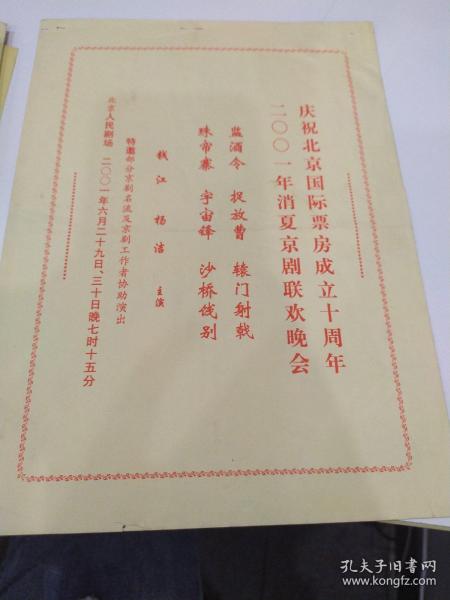 庆祝北京国际票房成立十周年
二〇〇一年消夏京剧联欢晚会
监酒令 捉放曹 辕门射戟
珠帘寨 宇宙锋 沙桥饯别
钱江 杨洁 主演
特邀部分京剧名流及京剧工作者协助演出
北京人民剧场 二〇〇一年六月二十九日、三十日晚七时十五分
孔夫子旧书网
www.kongfz.com